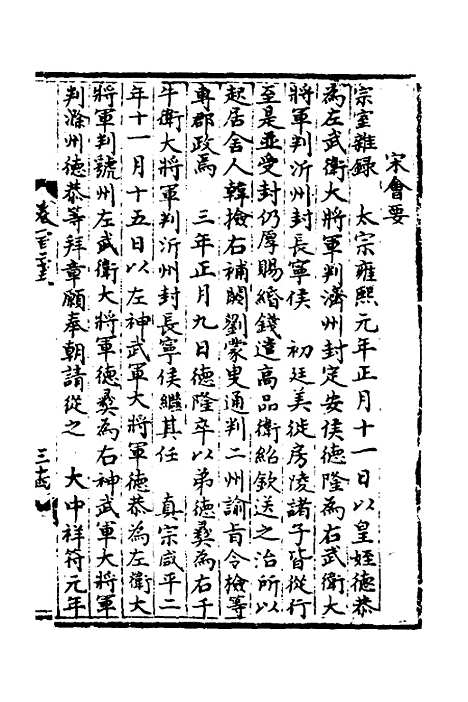 宋會要
宗室雜錄　太宗雍熙元年正月十一日以皇姪德恭
為左武衛大將軍判濟州封定安侯德隆為右武衛大
將軍判沂州封長寧侯　初廷美徙房陵諸子皆從行
至是並受封仍厚賜緡錢遣高品衛紹欽送之治所以
起居舍人韓檢右補闕劉蒙叟通判二州諭旨令檢等
專郡政焉　三年正月九日德隆卒以弟德彞為右千
牛衛大將軍判沂州封長寧侯繼其任　真宗咸平二
年十一月十五日以左神武軍大將軍德恭為左衛大
將軍判虢州左武衛大將軍德彞為右神武軍大將軍
判滁州德恭等拜章願奉朝請從之　大中祥符元年